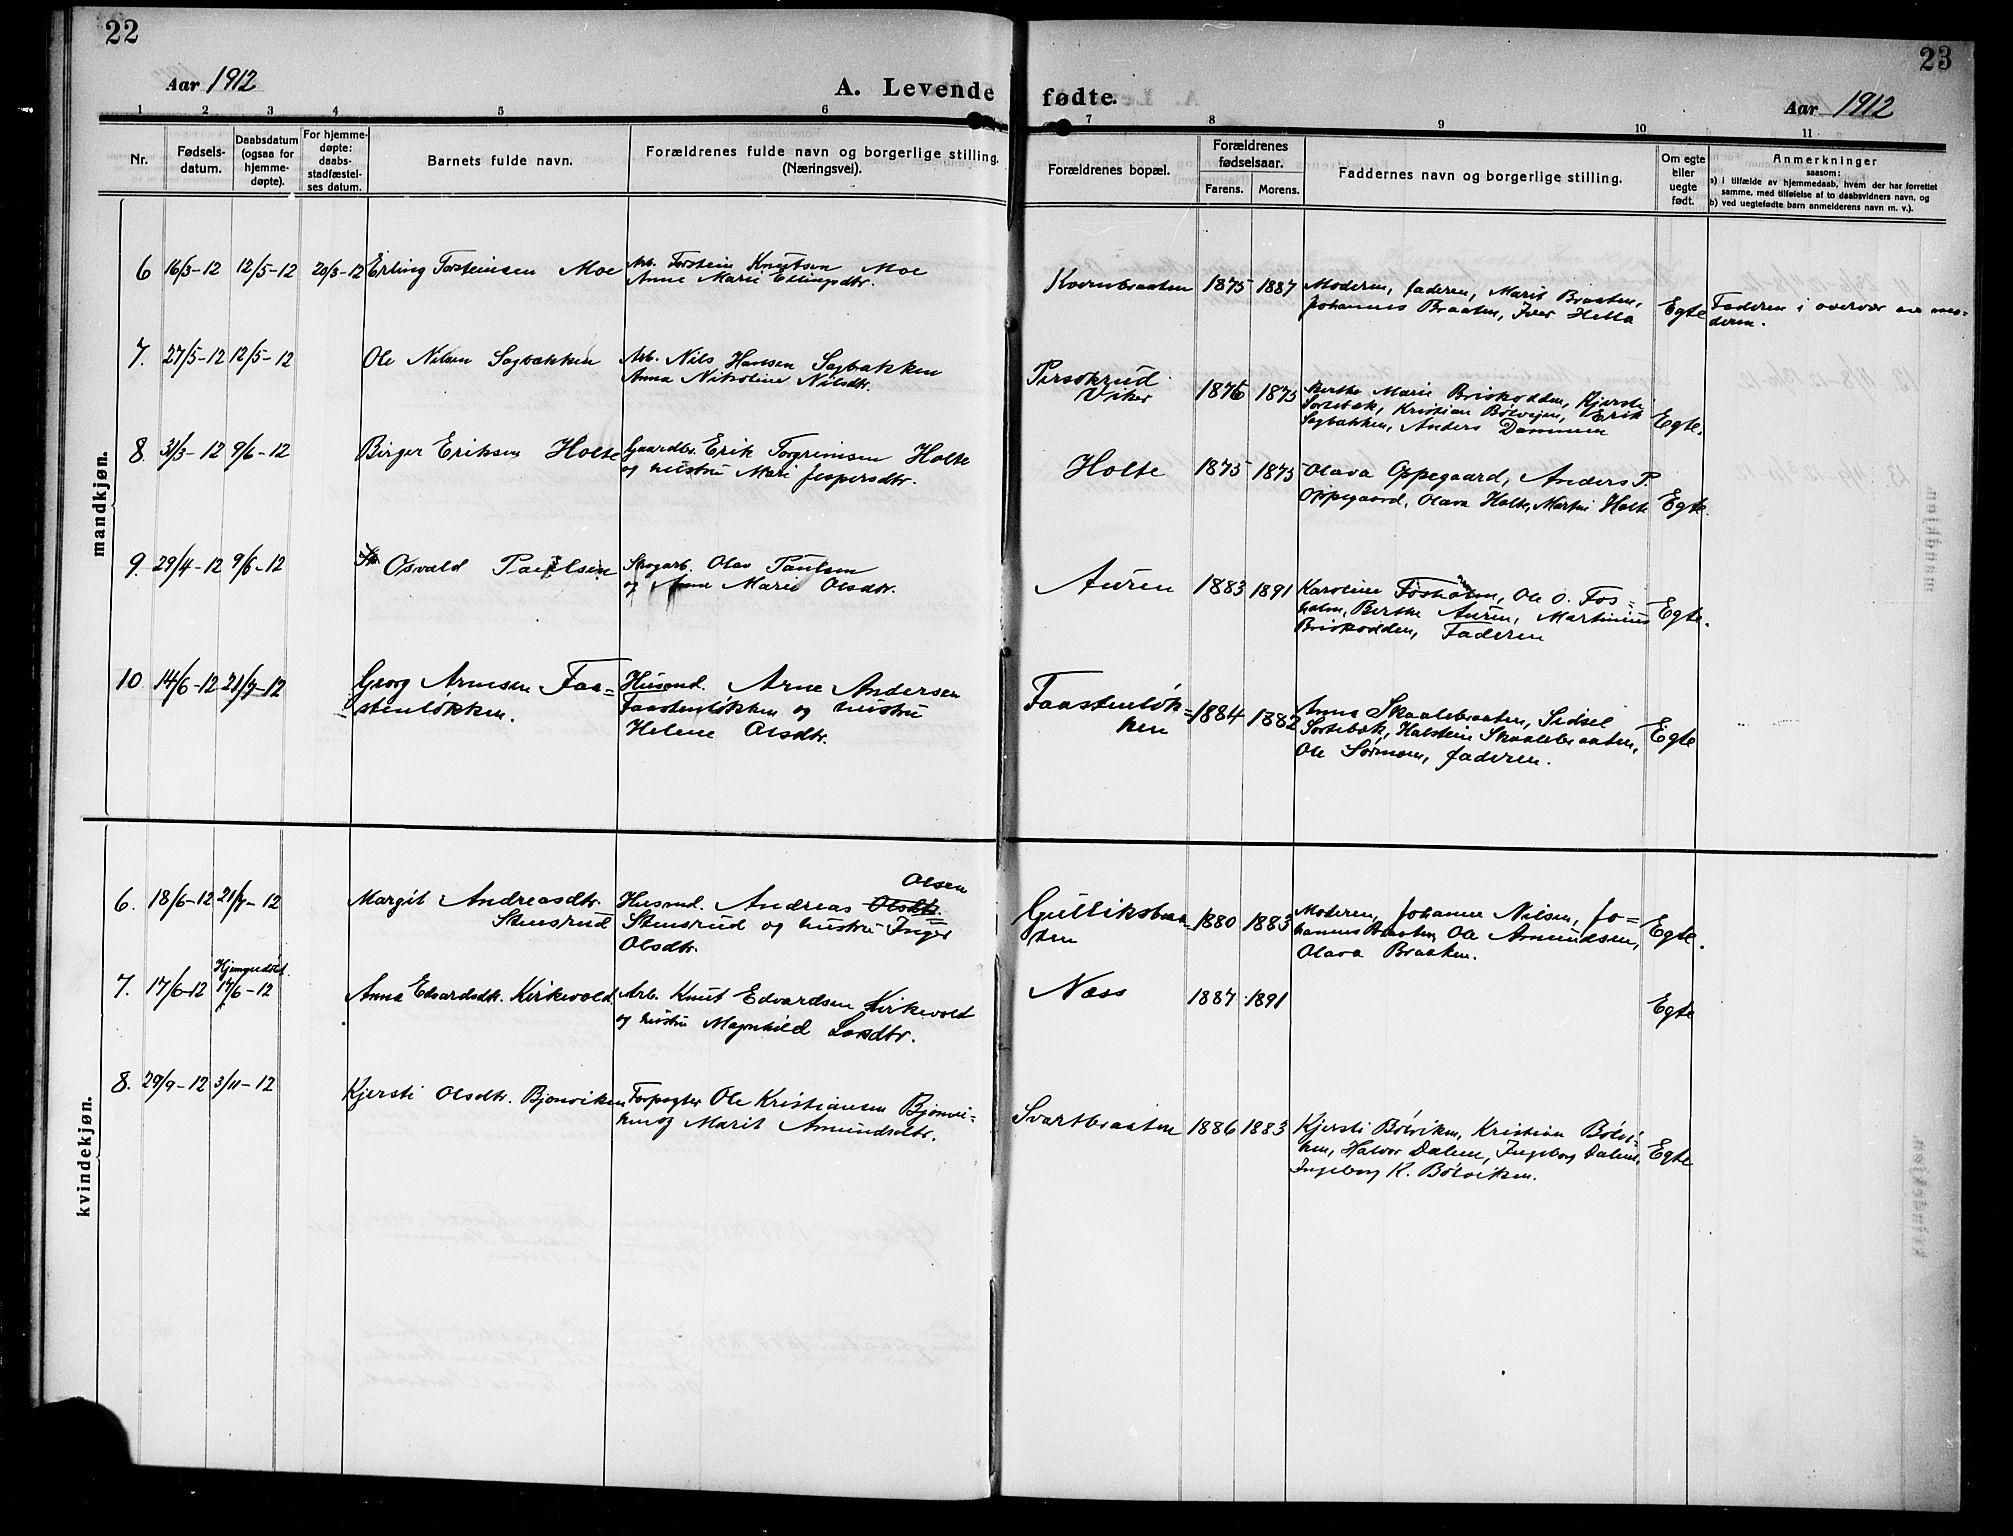 22
Aar 1912
A. Levende
1 2 3 4 5 6
Nr.
Fødsels-
datum.
Daabsdatum
(ogsaa for
hjemme-
døpte).
For hjemme-
døpte:
daabs-
stadfæstel-
ses datum.
Barnets fulde navn.
Forældrenes fulde navn og borgerlige stilling.
(Næringsvei).
mandkjøn.
6 16/3-12 12/5-12 20/3-12 Erling Torsteinsen Moe
Arb. Torstein Knutsen Moe
Anne Marie Ellingsdtr.
7. 27/5-12 12/5-12 Ole Nilsen Sagbakken
Arb. Nils Hansen Sagbakken
Anna Nikoline Nilsdtr.
8. 31/3-12 9/6-12 Birger Eriksen Holte
Gaardbr. Erik Torgrimsen Holte
og hustru Mari Jespersdtr.
9. 29/4-12 9/6-12 Osvald Paulsen
Skogarb. Olav Paulsen
og Anne Marie Olsdtr.
10. 14/6-12 21/7-12 Georg Arnesen Faa=
stenløkken.
Husmd. Arne Andersen
Faastenløkken og hustru
Helene Olsdtr.
kvindekjøn.
6. 18/6-12 21/7-12 Margit Andreasdtr.
Stensrud
Olsen
Husmd. Andreas Olsdtr.
Stensrud og hustru Inger
Olsdtr.
Hjemmedøbt.
7. 17/6-12 17/6-12 Anna Edvardsdtr. Kirkevold
Arb. Knut Edvardsen Kirkevold
og hustru Magnhild Larsdtr.
8. 29/9-12 3/11-12 Kjersti Olsdtr. Bjonviken
Forpagter Ole Kristiansen Bjonvi-
ken og Marit Amundsdtr.
23
fødte.
Aar 1912
7 8 9 10 11
Forældrenes bopæl.
Forældrenes
fødselsaar.
Farens. Morens.
Faddernes navn og borgerlige stilling.
Om egte
eller
uegte
født.
Anmerkninger
saasom:
a) i tilfælde av hjemmedaab, hvem der har forrettet
samme, med tilføielse af to daabsvidners navn, og
b) ved uegtefødte barn anmelderens navn m. v.).
Kvernbraaten 1875 1887
Moderen, faderen, Marit Braaten,
Johannes Braaten, Iver Hella
Egte
Faderen i overvær av mo=
deren.
Persokrud
Viker
1876 1875
Berthe Marie Briskodden, Kjersti
Sortebæk, Kristian Bølviken, Erik
Sagbakken, Anders Dammen
Egte.
Holte 1875 1875
Olava Oppegaard, Anders P.
Oppegaard, Olava Holte, Martin Holte
Egte.
Auren 1883 1891
Karoline Fosholm, Ole O. Fos=
holm, Berthe Auren, Martinius
Briskodden, Faderen
Egte.
Faastenløk=
ken
1884 1882
Anna Skaalebraaten, Sidsel
Sortebæk, Halstein Skaalebraaten,
Ole Sørmoen, faderen.
Egte
Gulliksbraa=
ten
1880 1883
Moderen, Johanne Nilsen, Jo=
hannes Braaten, Ole Amundsen,
Olava Braaten.
Egte.
Næss 1887 1891
Egte
Svartbraaten 1886 1883
Kjersti Bølviken, Kristian Bølvi=
ken, Halvor Dalen, Ingeborg Dalen,
Ingeborg K. Bølviken.
Egte